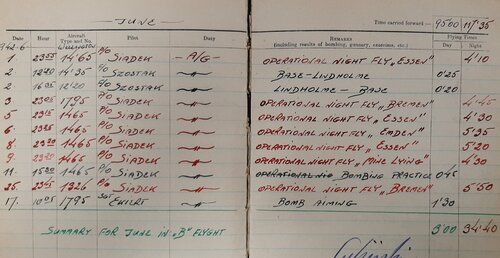 JUNE
Time carried forward:— 95'00 117'35
Date Hour Aircraft Type and No. Pilot REMARKS (including results of bombing, gunnery, exercises, etc.) Flying Times
Day Night
942.6 WELLINGTON
1. 23.05 1465 P/O SIADEK — A/G — OPERATIONAL NIGHT FLY „ESSEN" 4'10
2 12.20 P/O SZOSTAK — „ — BASE - LINDHOLME 0'25
2 16.05 P/O SZOSTAK — „ — LINDHOLME - BASE 0'20
3 23.05 1795 P/O SIADEK — „ — OPERATIONAL NIGHT FLY „BREMEN" 4'45
5 23.15 1465 P/O SIADEK — „ — OPERATIONAL NIGHT FLY „ESSEN" 4'30
6 23.25 1465 P/O SIADEK — „ — OPERATIONAL NIGHT FLY „EMDEN" 5'35
8. 1465 P/O SIADEK — „ — OPERATIONAL NIGHT FLY „ESSEN" 5'20
9 1465 P/O SIADEK — „ — OPERATIONAL NIGHT FLY „MINE LYING" 4'30
11. 15.20 1465 P/O SIADEK — „ — BOMBING PRACTICE 0'45
25. 23.45 1326 P/O SIADEK — „ — OPERATIONAL NIGHT FLY „BREMEN" 5'50
17. 10.05 1795 SGT EWIERT — „ — BOMB AIMING 1'30
SUMMARY FOR JUNE IN „B" FLYGHT 3'00 34'40